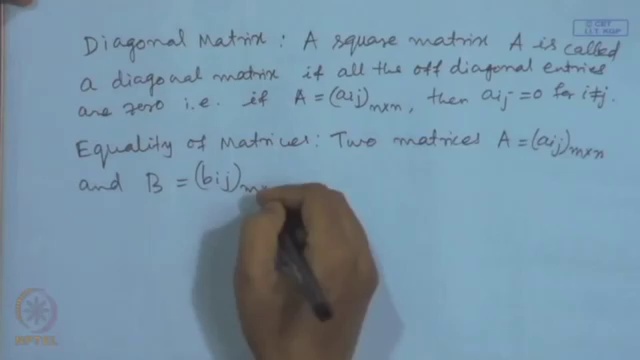 © CET
I.I.T. KGP
Diagonal Matrix : A square matrix A is called
a diagonal matrix if all the off diagonal entries
are zero i.e. if A = (aij)n×n, then aij = 0 for i≠j.
Equality of Matrices : Two matrices A = (aij)m×n
and B = (bij)m×
NPTEL